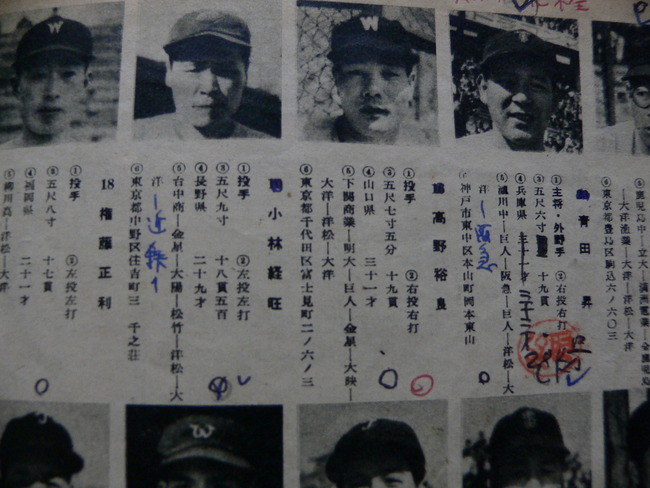 ⑤鹿児島中―立大―満洲電業―全鹿児島
―大洋漁業―大洋―洋松―大洋
⑥東京都豊島区駒込六ノ六〇三
青田 昇
①主将・外野手 ②右投右打
③五尺六寸 十九貫
④兵庫県 三十二才
⑤滝川中―巨人―阪急―巨人―洋松―大
洋―阪急
神戸市東中区本山町岡本東山
高野裕良
①投手 ②右投右打
③五尺七寸五分 十九貫
④山口県 三十一才
⑤下関商業―明大―巨人―金星―大映―
大洋―洋松―大洋
⑥東京都千代田区富士見町二ノ六ノ三
小林経旺
①投手 ②左投左打
③五尺九寸 十八貫五百
④長野県 二十九才
⑤台中商―金星―大陽―松竹―洋松―大
洋―近鉄
⑥東京都中野区住吉町三 千之荘
18 権藤正利
①投手 ②左投左打
③五尺八寸 十七貫
④福岡県 二十一才
⑤柳川商―洋松―大洋